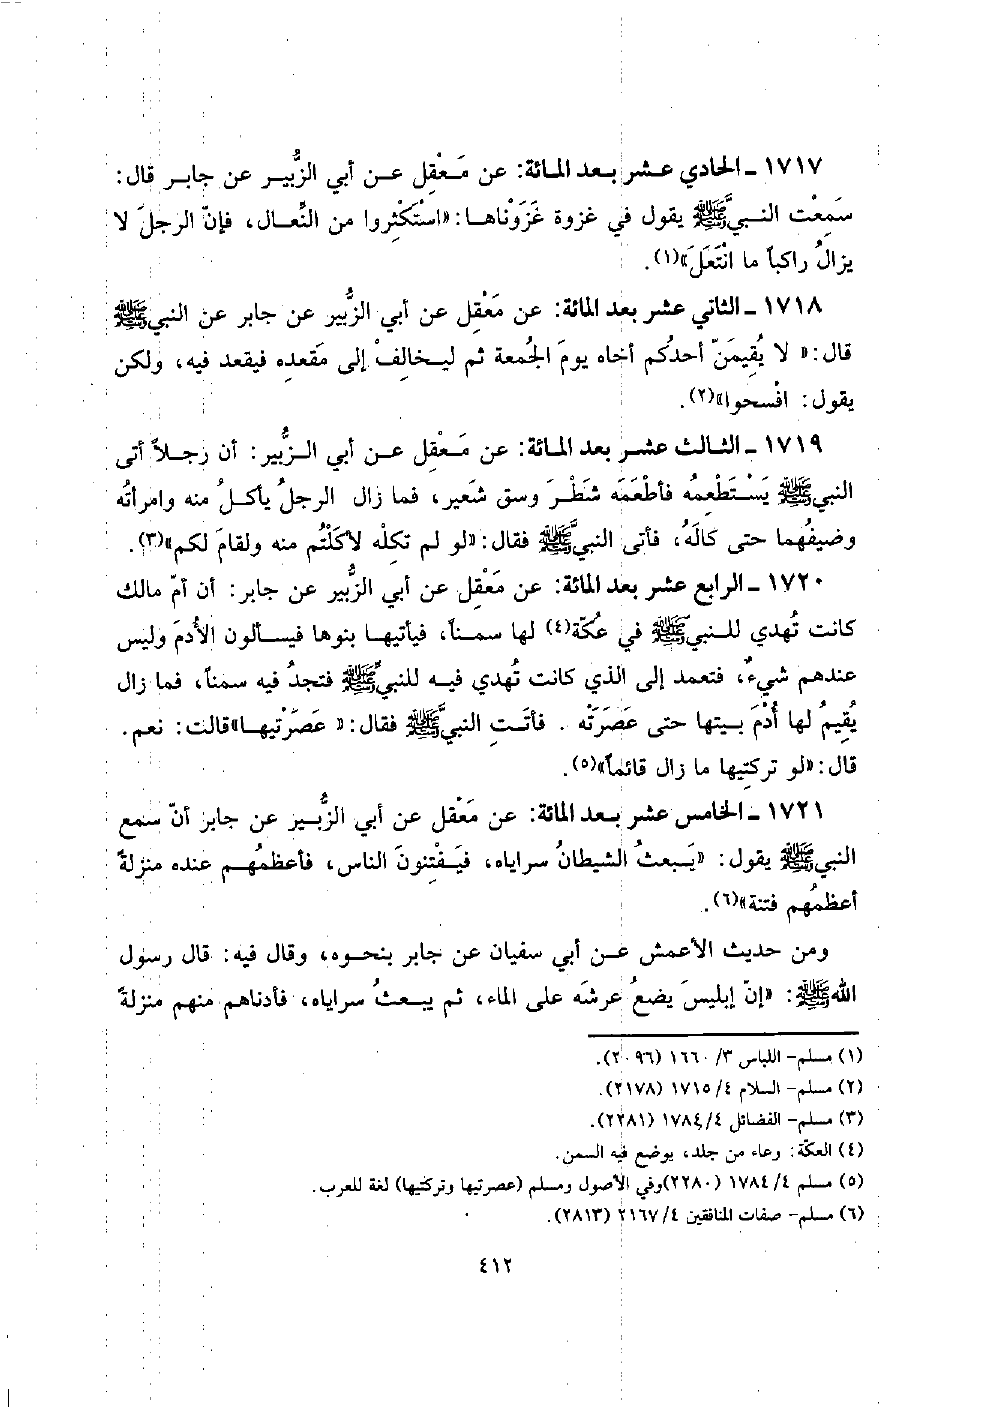 ١٧١٧ ـ الحادي عشر بعد المائة: عن مَعْقِل عن أبي الزُّبير عن جابر قال:
سَمِعْت النبيَّ ﷺ يقول في غزوة غَزَوْناها: «اسْتَكْثِروا من النِّعال، فإنّ الرجلَ لا
يزالُ راكباً ما انْتَعَلَ»(١).
١٧١٨ ـ الثاني عشر بعد المائة: عن مَعْقِل عن أبي الزُّبير عن جابر عن النبي ﷺ
قال: « لا يُقيمَنّ أحدُكم أخاه يومَ الجُمعة ثم ليخالِفْ إلى مَقعده فيقعد فيه، ولكن
يقول: افْسحوا»(٢).
١٧١٩ ـ الثالث عشر بعد المائة: عن مَعْقِل عن أبي الزُّبير: أن رجلاً أتى
النبي ﷺ يَسْتَطْعِمُه فأطْعَمَه شَطْرَ وسق شَعير، فما زال الرجلُ يأكلُ منه وامرأتُه
وضيفُهما حتى كالَهُ، فأتى النبيَّ ﷺ فقال: «لو لم تكلْه لأكَلْتُم منه ولقامَ لكم»(٣).
١٧٢٠ ـ الرابع عشر بعد المائة: عن مَعْقِل عن أبي الزُّبير عن جابر: أن أمّ مالك
كانت تُهدي للنبي ﷺ في عُكّة(٤) لها سمناً، فيأتيها بنوها فيسألون الأُدمَ وليس
عندهم شيءٌ، فتعمد إلى الذي كانت تُهدي فيه للنبيِّ ﷺ فتجدُ فيه سمناً، فما زال
يُقيمُ لها أُدْمَ بيتها حتى عَصَرَتْه . فأتَتِ النبيَّ ﷺ فقال: « عَصَرْتيها»قالت: نعم.
قال: «لو تركتيها ما زال قائماً»(٥).
١٧٢١ ـ الخامس عشر بعد المائة: عن مَعْقِل عن أبي الزُّبير عن جابر أنّ سمع
النبي ﷺ يقول: «يَبعثُ الشيطانُ سراياه، فيَفْتِنونَ الناس، فأعظمُهم عنده منزلةً
أعظمُهم فتنة»(٦).
ومن حديث الأعمش عن أبي سفيان عن جابر بنحوه، وقال فيه: قال رسول
الله ﷺ: «إنّ إبليسَ يضعُ عرشَه على الماء، ثم يبعثُ سراياه، فأدناهم منهم منزلةً
(١) مسلم- اللباس ٣/ ١٦٦٠ (٢٠٩٦).
(٢) مسلم- السلام ٤/ ١٧١٥ (٢١٧٨).
(٣) مسلم- الفضائل ٤/ ١٧٨٤ (٢٢٨١).
(٤) العكّة: وعاء من جلد، يوضع فيه السمن.
(٥) مسلم ٤/ ١٧٨٤ (٢٢٨٠)وفي الأصول ومسلم (عصرتيها وتركتيها) لغة للعرب.
(٦) مسلم- صفات المنافقين ٤/ ٢١٦٧ (٢٨١٣).
٤١٢